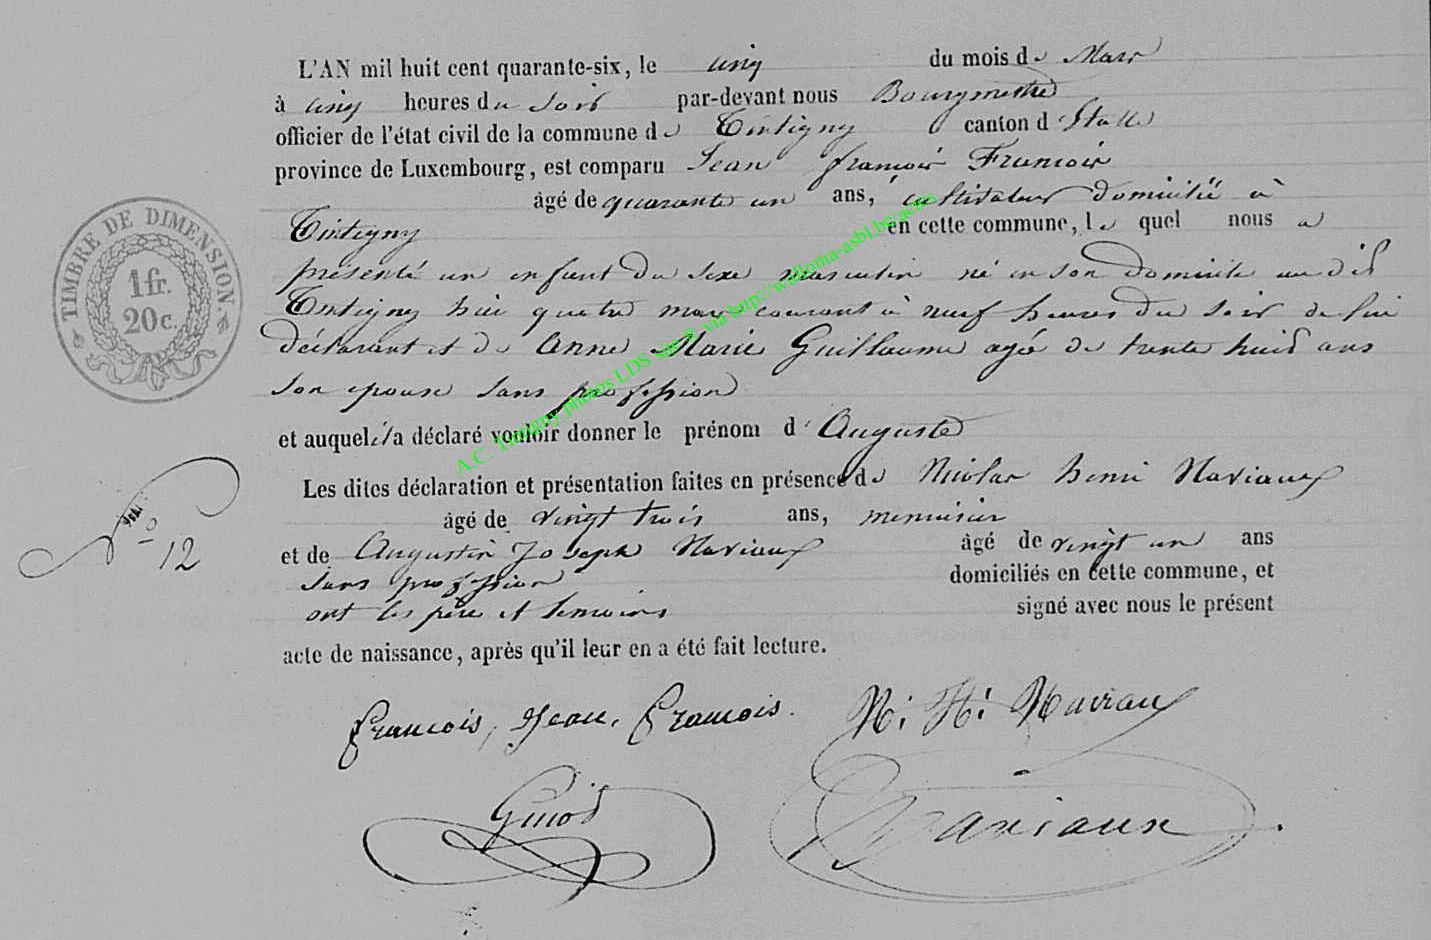 L'AN mil huit cent quarante-six, le cinq du mois de Mars
à cinq heures du soir par-devant nous Bourgmestre
officier de l'état civil de la commune de Tintigny canton d'Etalle
province de Luxembourg, est comparu Jean françois François
âgé de quarante un ans, cultivateur domicilié à
Tintigny en cette commune, le quel nous a
présenté un enfant du sexe masculin né en son domicile au dit
Tintigny hier quatre mars courant à neuf heures du soir de lui
déclarant et de Anne Marie Guillaume agée de trente huit ans
son epouse sans profession
et auquel il a déclaré vouloir donner le prénom d'Auguste
Les dites déclaration et présentation faites en présence de Nicolas henri Naviaux
âgé de vingt trois ans, menuisier
et de Augustin Joseph Naviaux âgé de vingt un ans
sans profession domiciliés en cette commune, et
ont les père et temoins signé avec nous le présent
acte de naissance, après qu'il leur en a été fait lecture.
TIMBRE DE DIMENSION.
1 fr.
20 c.
N° 12
François, Jean, François. N. H. Naviaux
Naviaux
A.C. Tintigny photos LDS via http://walloma-asbl.be/actes